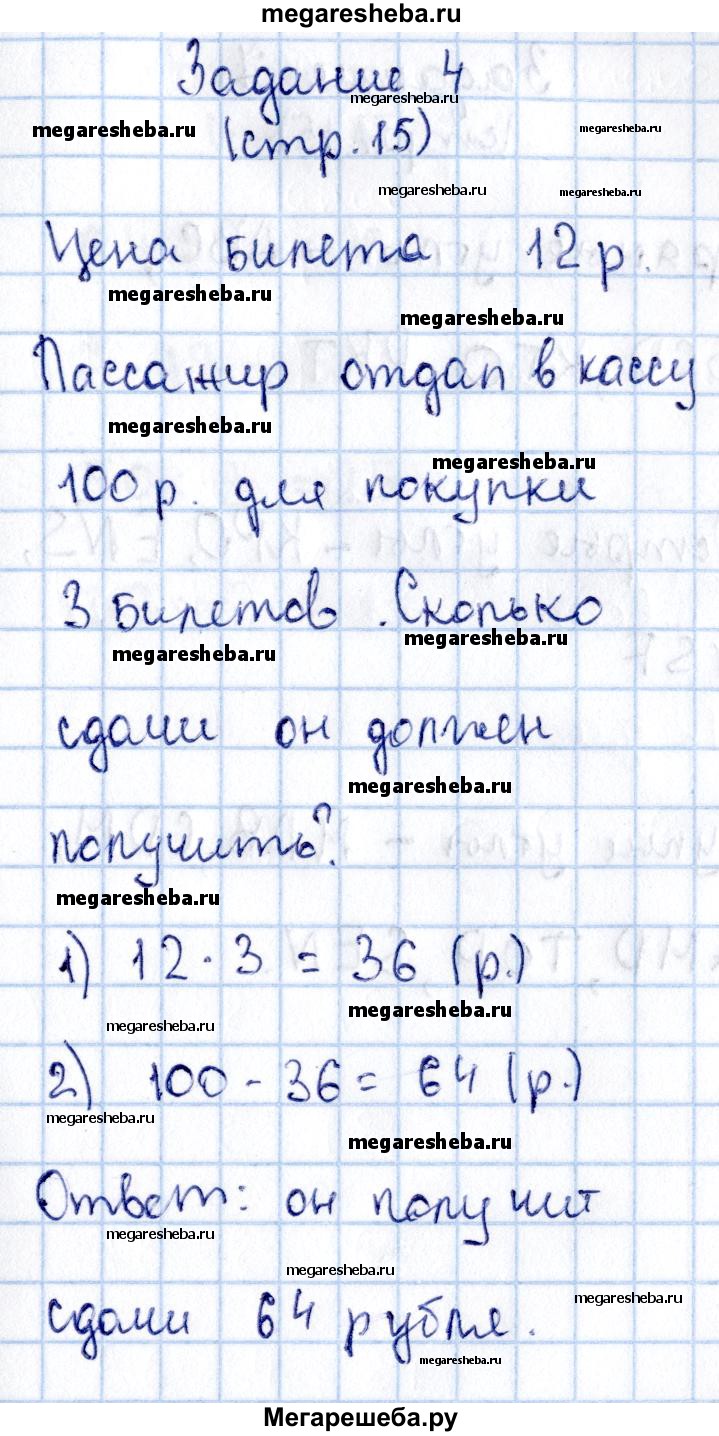 megaresheba.ru
Задание 4
megaresheba.ru
megaresheba.ru
(стр. 15)
megaresheba.ru
megaresheba.ru
megaresheba.ru
Цена билета 12 р.
megaresheba.ru
megaresheba.ru
Пассажир отдал в кассу
megaresheba.ru
megaresheba.ru
100 р. для покупки
3 билетов. Сколько
megaresheba.ru
megaresheba.ru
сдачи он должен
megaresheba.ru
получить?
megaresheba.ru
1) 12 · 3 = 36 (р.)
megaresheba.ru
megaresheba.ru
2) 100 - 36 = 64 (р.)
megaresheba.ru
megaresheba.ru
Ответ: он получит
megaresheba.ru
megaresheba.ru
megaresheba.ru
сдачи 64 рубля.
megaresheba.ru
Мегарешеба.ру